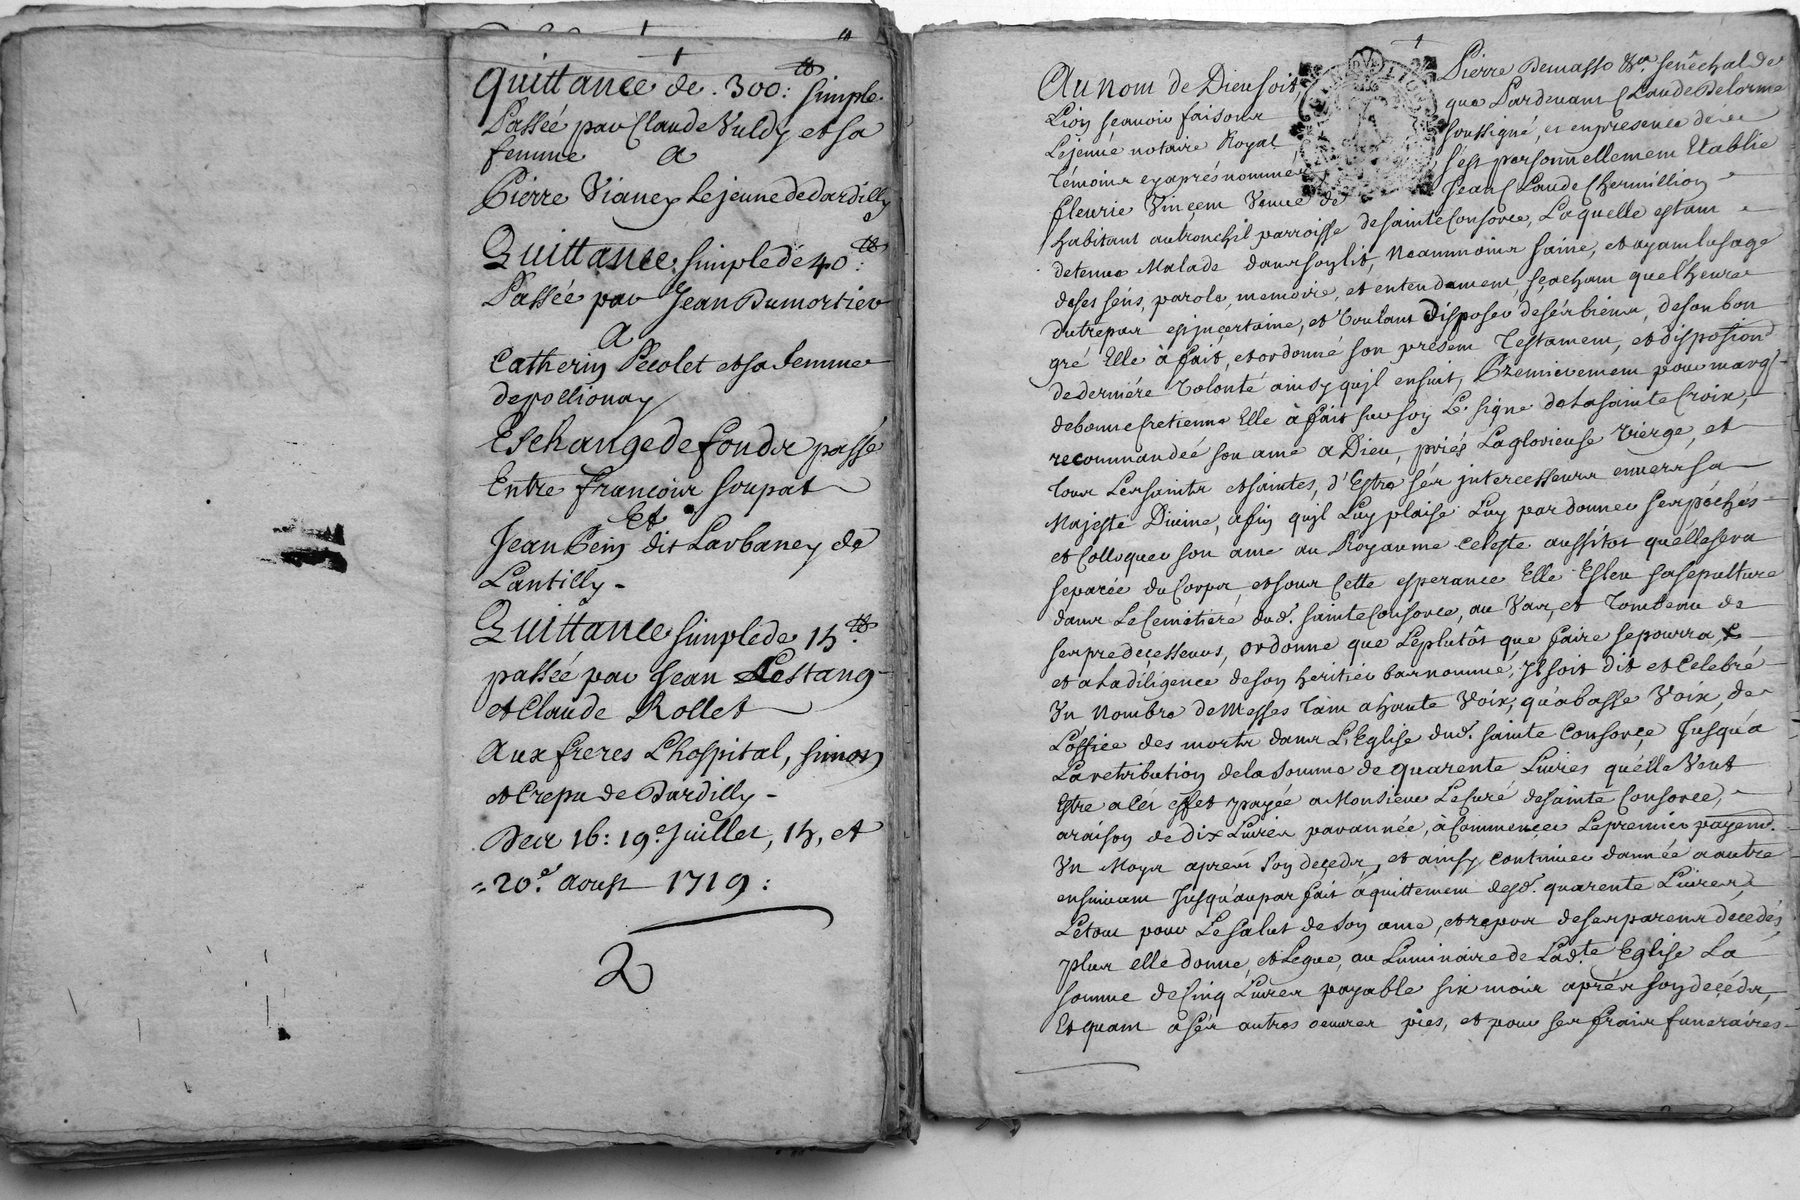 quittance de 300: ₶ simple
Passée par Claude Vuldy et sa
femme a
Pierre Vianey Lejeune de dardilly
Quittance simple de 40 ₶:
Passée par Jean Dumortier
A
Catherin Pecolet et sa femme
depollionay
Eschange de fonds passé
Entre francois soupat
Et
Jean Pein dit Larbaney de
Lantilly -
Quittance simple de 15 ₶:
passée par Jean Lestang
et Claude Rollet
Aux freres L'hospital, simon
et Crepu de Dardilly -
Des 16: 19e Juillet, 15, et
20e aoust 1719:
2
Au nom de Dieu soit, Pierre Demasso Sr senechal de
Lion scavoir faisons que Pardevant Claude Delorme
Lejeune notaire Royal soussigné, et en presence des
témoins cy aprés nommés, s'est personnellement Etablie
fleurie Vincent Veuve de Jean Claude Chermillion
habitant au tronchil parroisse de sainte Consorce, Laquelle estant
detenue Malade dans son lit, Neammoins saine, et ayant lusage
de ses séns, parole, memoire, et entendement, sçachant que l'heure
du trepas est incertaine, et Voulant Disposer de sés biens, de son bon
gré Elle à fait, et ordonné son present Testament, et disposion
de derniére Volonté ainsy qu'il ensuit, Premierement pour marq.
de bonne cretienne Elle à fait sur soy Le signe de La sainte Croix,
recommandée son ame a Dieu, priés La glorieuse Vierge, et
tous Les saints et saintes, d'Estre sés intercesseurs envers sa
Majesté Divine, afin qu'il Luy plaise Luy pardonner ses péchés
et Colloquer son ame au Royaume celeste aussitot quélle sera
separée du Corps, et sous Cette esperance Elle Esleu sa sepulture
dans Le Cemétiére dud. sainte Consorce, au Vas, et Tombeau de
ses predeçesseurs, ordonne que Le plutôt que faire se pourra,
et a La diligence de son heritier bas nommé, Il soit dit et Celebré
Un Nombre de Messes tant a haute Voix, qu'a basse Voix, de
L'office des morts dans L'Eglise dud. sainte Consorce Jusqu'a
La retribution de la somme de quarente Livres quélle Veut
Estre a Cét effet payée a Monsieur Le Curé de sainte Consorce,
a raison de dix Livres par année, à Commencer Le premier payem.
Un Moys apres son decéds, et ainsy continuer dannée a autre
ensuivant Jusqu'au parfait aquittement desd. quarente Livres,
Le tout pour Le salut de son ame, et repos de ses parens décedés,
plus elle donne, et Legue, au Luminaire de Lad.te Eglise La
somme de Cinq Livres payable six mois aprés son deçéds,
Et quant a sés autres oeuvres pies, et pour ses frais funeraires